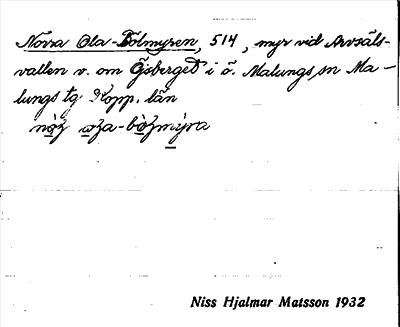 Norra Ola-Bölmyren, 514, myr vid Arvsäls-
vallen v. om Öjsberget i ö. Malungs sn Ma-
lungs tg Kopp. län
Niss Hjalmar Matsson 1932